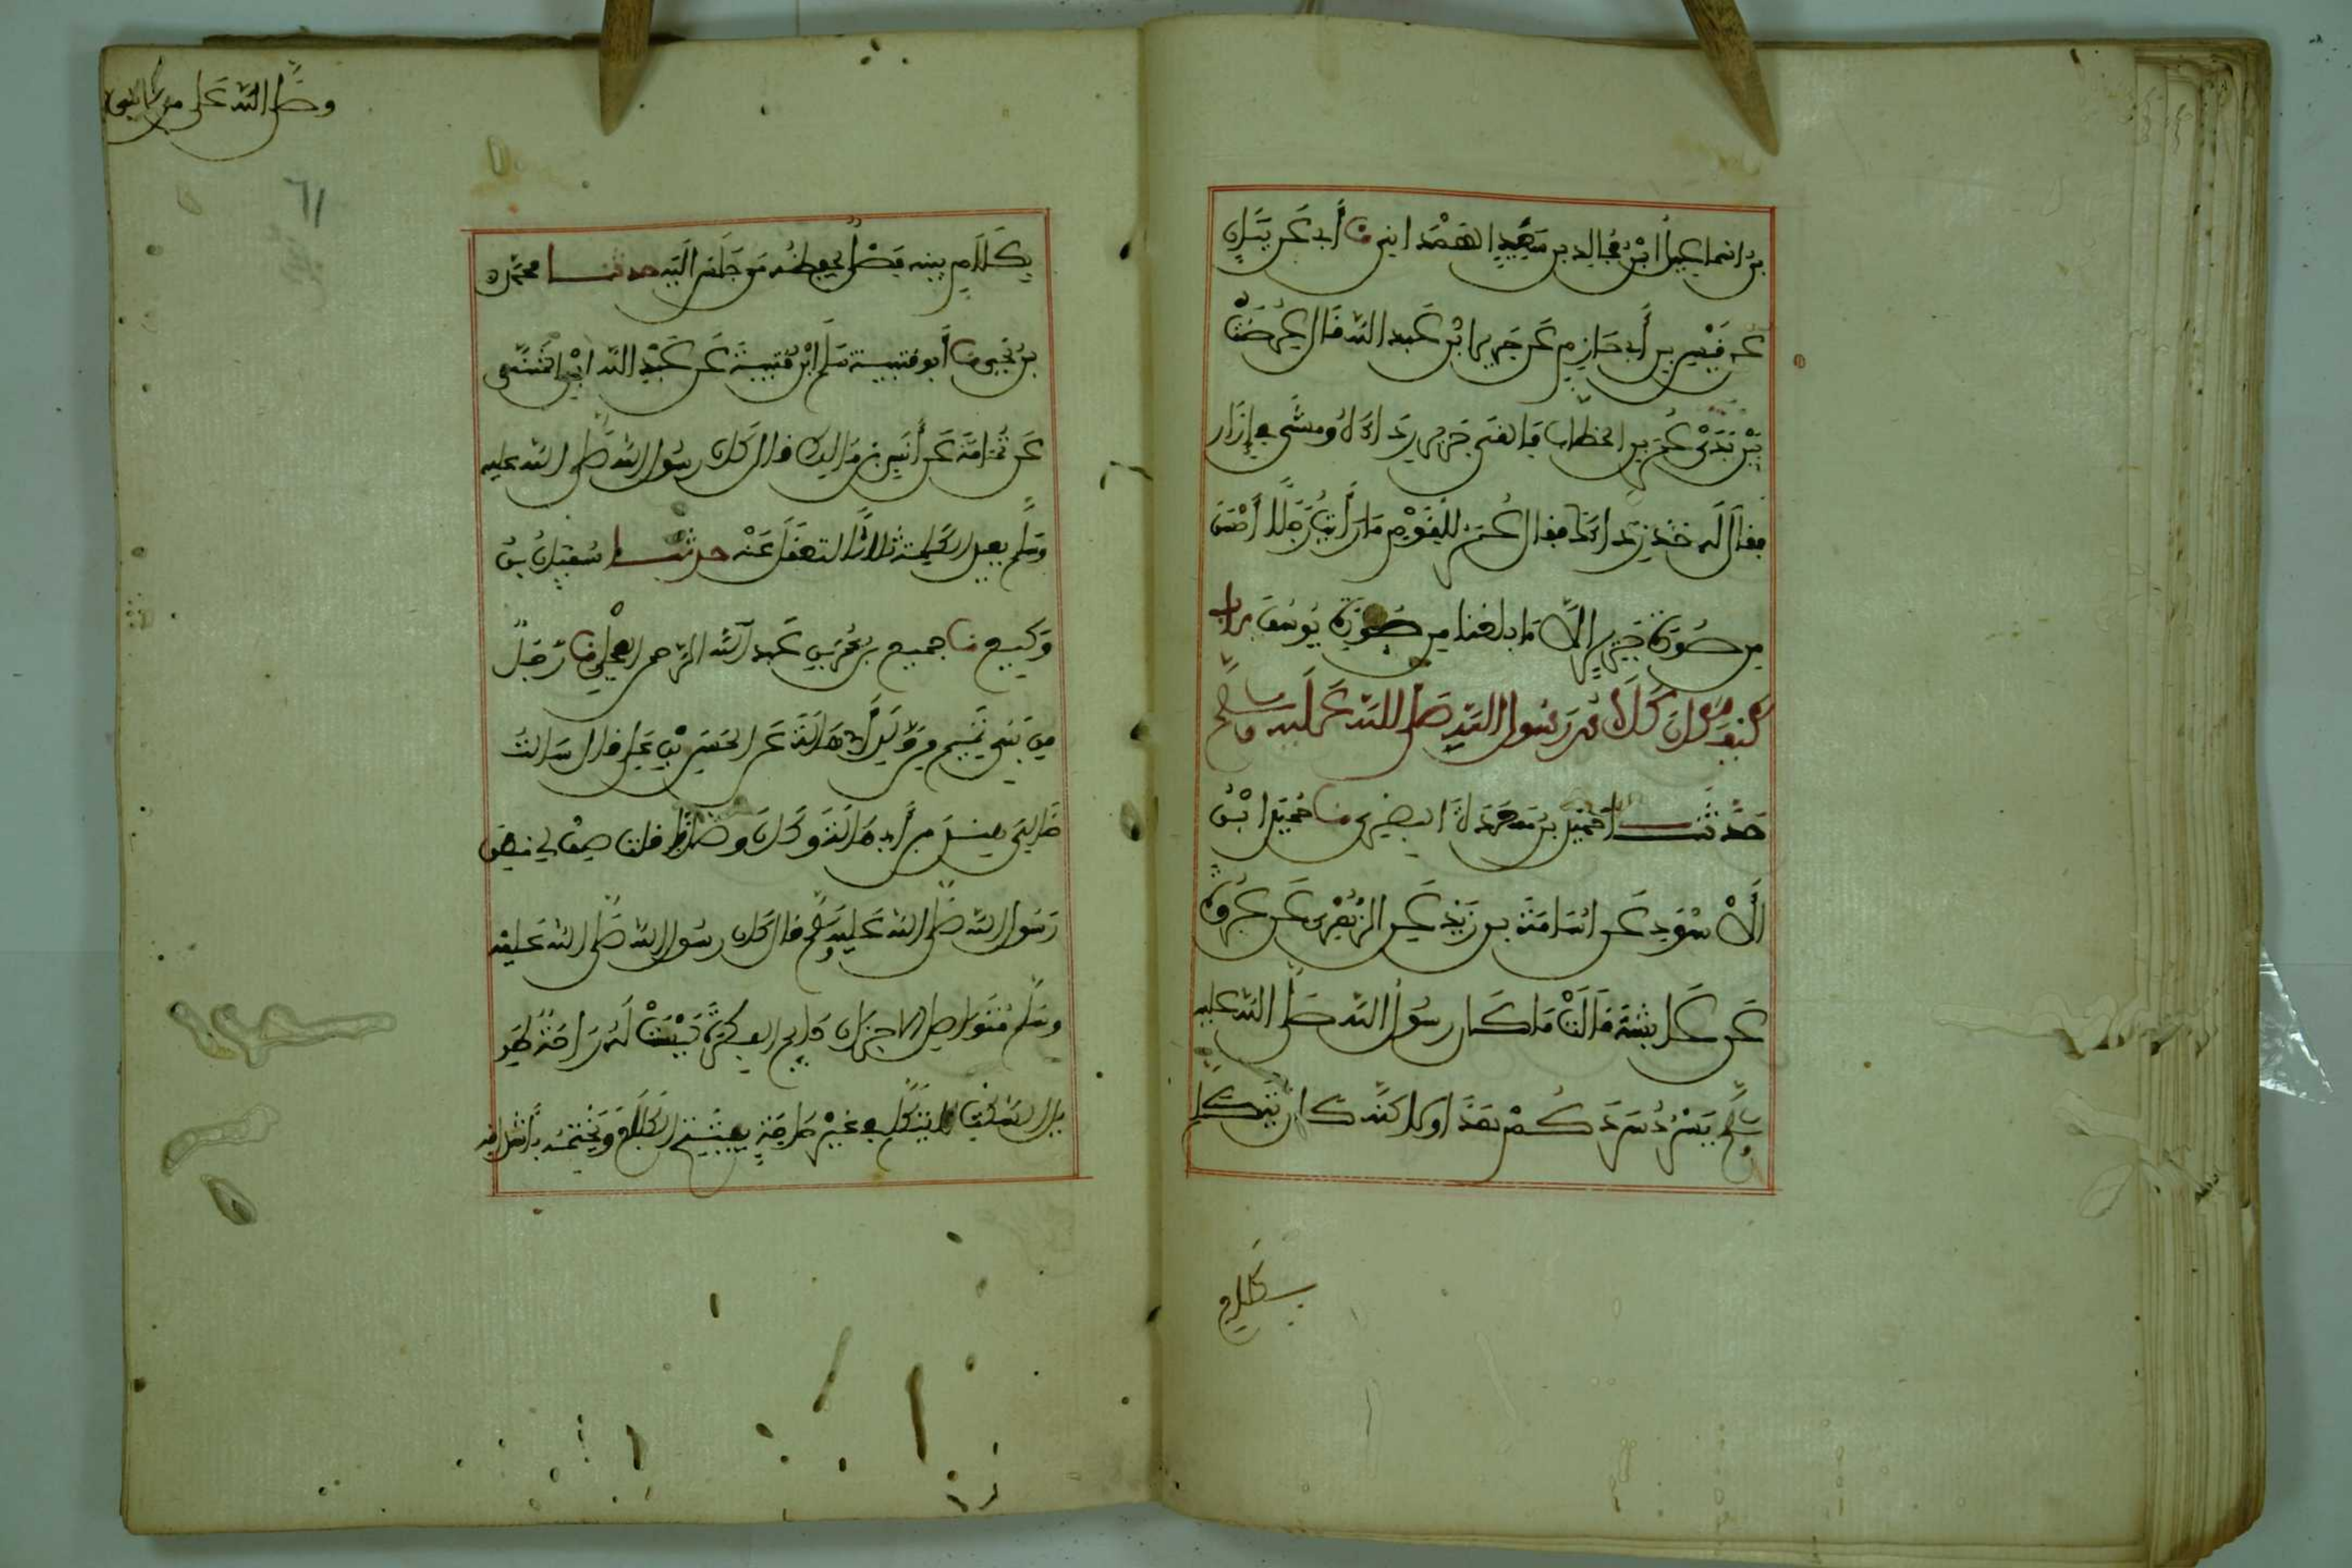 بن اسماعيل ابن مجالد بن سعيد الهمداني نا أبي عن بيان
عن قيس بن أبي حازم عن جرير ابن عبد الله قال عرضت
بين يدي عمر بن الخطاب فالقى جرير رداءه ومشى في إزار
فقال له خذ رداءك فقال عمر للقوم ما رأيت رجلا أحسن
من صورة جرير إلا ما بلغنا من صورة يوسف باب
كيف كان كلام رسول الله صلى الله عليه وسلم
حدثنا حميد بن مسعدة البصري نا حميد ابن
الأسود عن اسامة بن زيد عن الزهري عن عروة
عن عائشة قالت ما كان رسول الله صلى الله عليه
وسلم يسرد سردكم هذا ولكنه كان يتكلم
بكلام
وصلى الله على
61
بكلام بينه فصل يحفظه من جلس اليه حدثنا محمد
بن يحيى نا أبو قتيبة سلم ابن قتيبة عن عبد الله ابن المثنى
عن ثمامة عن أنس بن مالك قال كان رسول الله صلى الله عليه
وسلم يعيد الكلمة ثلاثا لتعقل عنه حدثنا سفيان بن
وكيع نا جميع بن عمر بن عبد الرحمن العجلي نا رجل
من بني تميم من ولد أبي هالة عن الحسن بن علي قال سالت
خالي هند بن أبي هالة وكان وصافا فقلت صف لي منطق
رسول الله صلى الله عليه وسلم قال كان رسول الله صلى الله عليه
وسلم متواصل الاحزان دايم الفكرة ليست له راحة طو
يل السكت لا يتكلم في غير حاجة يفتتح الكلام ويختمه بأشداقه